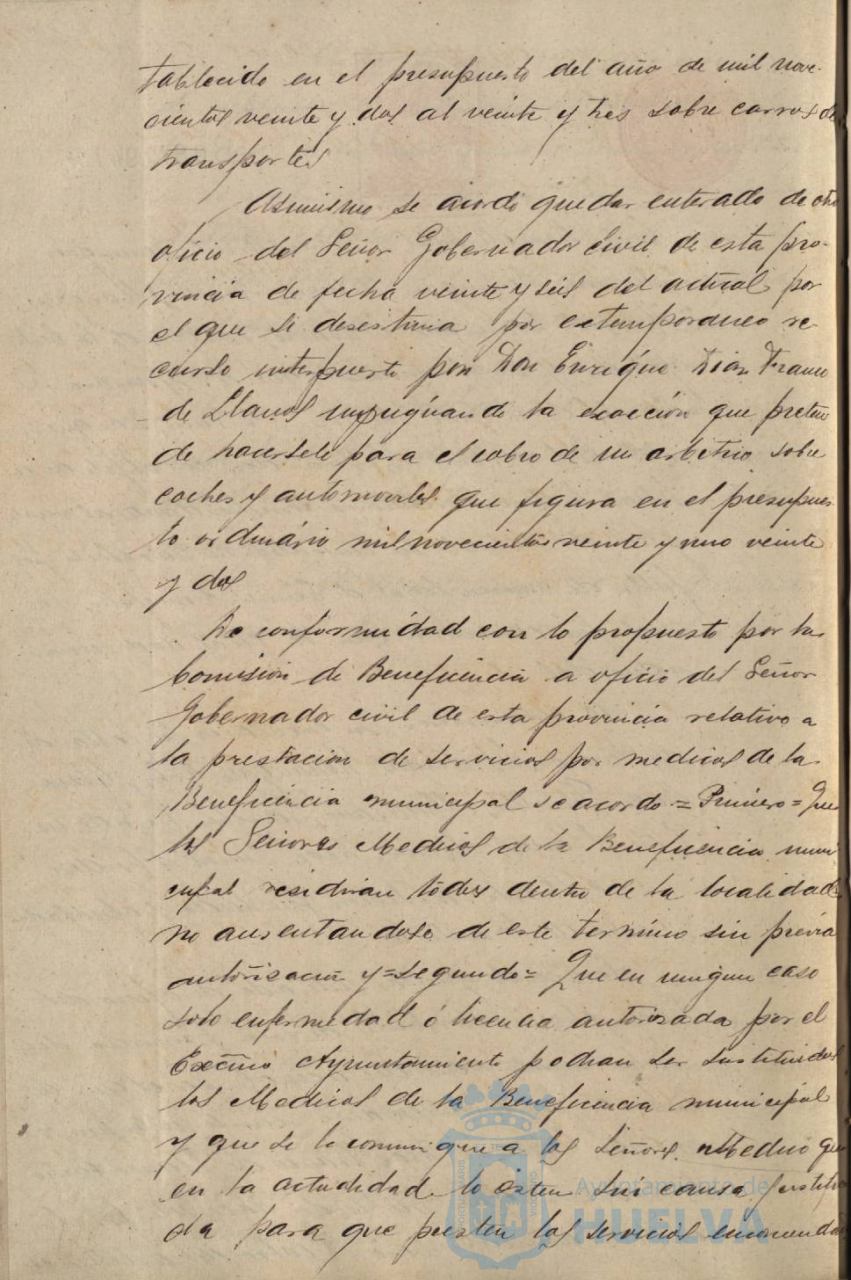 tablecido en el presupuesto del año de mil nove-
cientos veinte y dos al veinte y tres sobre carros de
transportes
Asimismo se acordó quedar enterado de otro
oficio del Señor Gobernador Civil de esta pro-
vincia de fecha veinte y seis del actual por
el que se desestima por extemporaneo re
curso interpuesto por Don Enrique Diaz Franco
de Llanos impugnando la exacción que preten
de hacersele para el cobro de un arbitrio sobre
coches y automoviles que figura en el presupues
to ordinário mil novecientos veinte y uno veinte
y dos
De conformidad con lo propuesto por la
Comisión de Beneficencia a oficio del Señor
Gobernador civil de esta provincia relativo a
la prestacion de servicios por medicos de la
Beneficencia municipal se acordo = Primero = Que
los Señores Medicos de la Beneficencia muni
cipal residiran todos dentro de la localidad
no ausentandose de este termino sin previa
autorizacion y = segundo = Que en ningun caso
solo enfermedad ó licencia autorizada por el
Excmo Ayuntamiento podran ser sustituidos
los Medicos de la Beneficencia municipal
y que se le comunique a los Señores Medico que
en la actualidad lo esten sin causa justifica
da para que presten los servicios encomenda
Ayuntamiento de
HUELVA